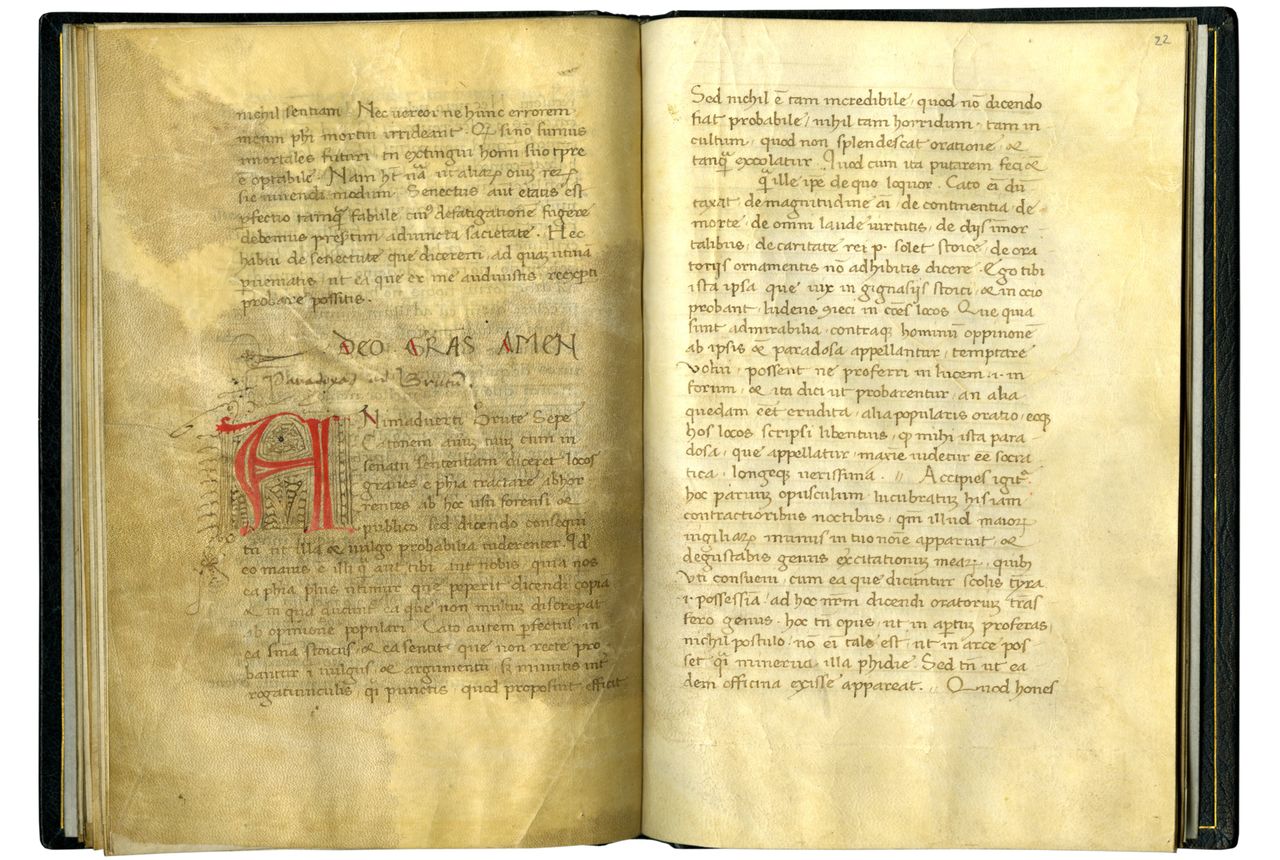 nichil sentiam Nec uereor ne hunc errorem
meum phi mortui irrideant. Q sino sumus
imortales futuri tn extingui homi suo tpre
ē optabile. Nam ht nā ut aliaꝝ oīuꝫ reꝝ
sic uiuendi modum. Senectus aut etatis est
pfectio tamq̄ fabule cuiꝰ defatigationē fugere
debemus presertim adiuncta sacietate. Hec
habui de senectute que dicerem, ad quaꝫ utinā
ueniatis, ut ea que ex me audiuistis re experti
probare possitis.
DEO GRAS AMEN
Paradoxa ad Brutū.
ANimaduerti Brute Sepe
Catonem auūꝫ tuuꝫ cum in
senatu sententiam diceret locos
graues e phia tractare abhor
rentes ab hoc usu forensi &
publico sed dicendo consequi
tn̄ ut illa & uulgo probabilia uiderentur. Qd
eo maius ē illi q̄ aut tibi aut nobis quia nos
ea phia plus utimur que peperit dicendi copia
& in qua dicunt ea que non multuꝫ discrepāt
ab opinione populari. Cato autem pfectus in
ea sua stoicus & ea sentit que non recte pro
bantur i uulgus, & argumentū sꝫ minutis int
rogatiunculis q̄i punctis quod proposuit efficit
22
Sed nichil ē tam incredibile quod nō dicendo
fiat probabile, nihil tam horridum tam in
cultum, quod non splendescat oratione &
tanq̄ excolatur. Quod cum ita putarem feci &
q̄ ille ipē de quo loquor. Cato eī dū
taxat de magnitudine aī de continentia de
morte de omni laude uirtutis, de dijs imor
talibus, de caritate rei p. solet stoice de ora
torijs ornamentis nō adhibitis dicere. Ego tibi
ista ipsa que uix in gignasijs stoici, & in ocio
probant, ludens 9ieci in cōes locos. Que quia
sunt admirabilia contraq hominū oppinionē
ab ipsis & paradosa appellantur, temptare
volui, possent ne proferri in lucem .i. in
forum, & ita dici ut probarentur, an alia
quedam eēt erudita, alia popularis oratio, eoqꝫ
hos locos scripsi libentius, q mihi ista para
dosa, que appellatur, maxie uidetur eē socra
tica, longeqꝫ uerissima. // Accipies igitᵘ.
hoc paruuꝫ opusculum lucubratuꝫ his iam
contractioribus noctibus, qm̄ illud maioꝝ
uigiliaꝝ munus in tuo noīe apparuit, &
degustabis genus exercitationuꝫ meaꝝ, quibꝫ
Vti consueui, cum ea que dicuntur scolis
.i. possessia ad hoc nrm̄ dicendi oratoriuꝫ trās
fero genus. hoc tn̄ opus ut in apertuꝫ proferas
nichil postulo, nō eī tale est, ut in arce pos
set q̄i minerua illa phidie Sed tn̄ ut ea
dem officina exisse appareat. // Quod hones